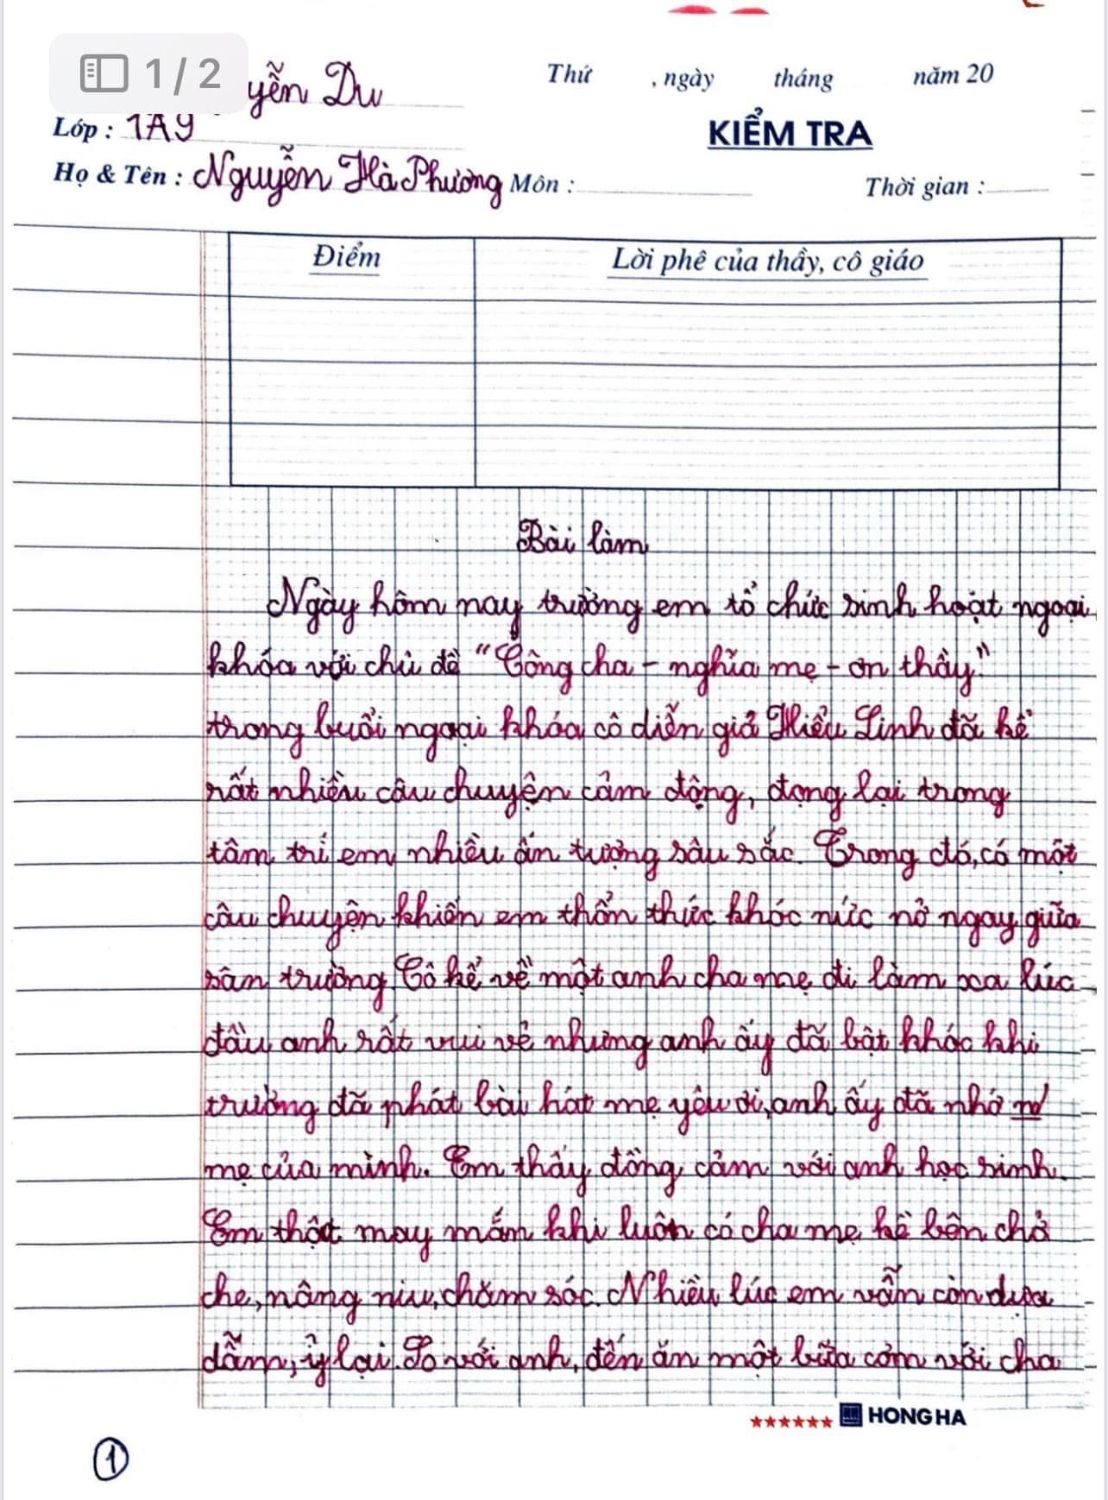 1 / 2
yễn Du
Thứ , ngày tháng năm 20
Lớp : 7A9
KIỂM TRA
Họ & Tên : Nguyễn Hà Phương Môn : Thời gian :
Điểm
Lời phê của thầy, cô giáo
Bài làm
Ngày hôm nay trường em tổ chức sinh hoạt ngoại
khóa với chủ đề "Công cha - nghĩa mẹ - ơn thầy"
trong buổi ngoại khóa cô diễn giả Hiểu Linh đã kể
rất nhiều câu chuyện cảm động, đọng lại trong
tâm trí em nhiều ấn tượng sâu sắc. Trong đó, có một
câu chuyện khiến em thổn thức khóc nức nở ngay giữa
sân trường. Cô kể về một anh cha mẹ đi làm xa lúc
đầu anh rất vui vẻ nhưng anh ấy đã bật khóc khi
trường đã phát bài hát mẹ yêu ơi, anh ấy đã nhớ
mẹ của mình. Em thấy đồng cảm với anh học sinh.
Em thật may mắn khi luôn có cha mẹ kề bên chở
che, nâng niu, chăm sóc. Nhiều lúc em vẫn còn dựa
dẫm, ỷ lại. So với anh, đến ăn một bữa cơm với cha
HONG HA
1